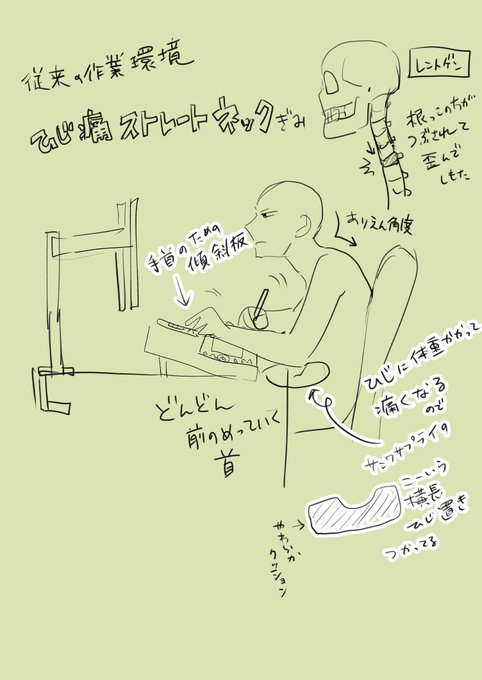 従来の作業環境
ひじ痛ストレートネックぎみ
レントゲン
根っこのちが
つぶされて
歪んで
しもた
ありえん角度
手首のための
傾斜板
どんどん
前のめっていく
首
ひじに体重かかって
痛くなる
ので
サンワサプライの
こーいう
横長
ひじ置き
つかってる
やわらか
クッション